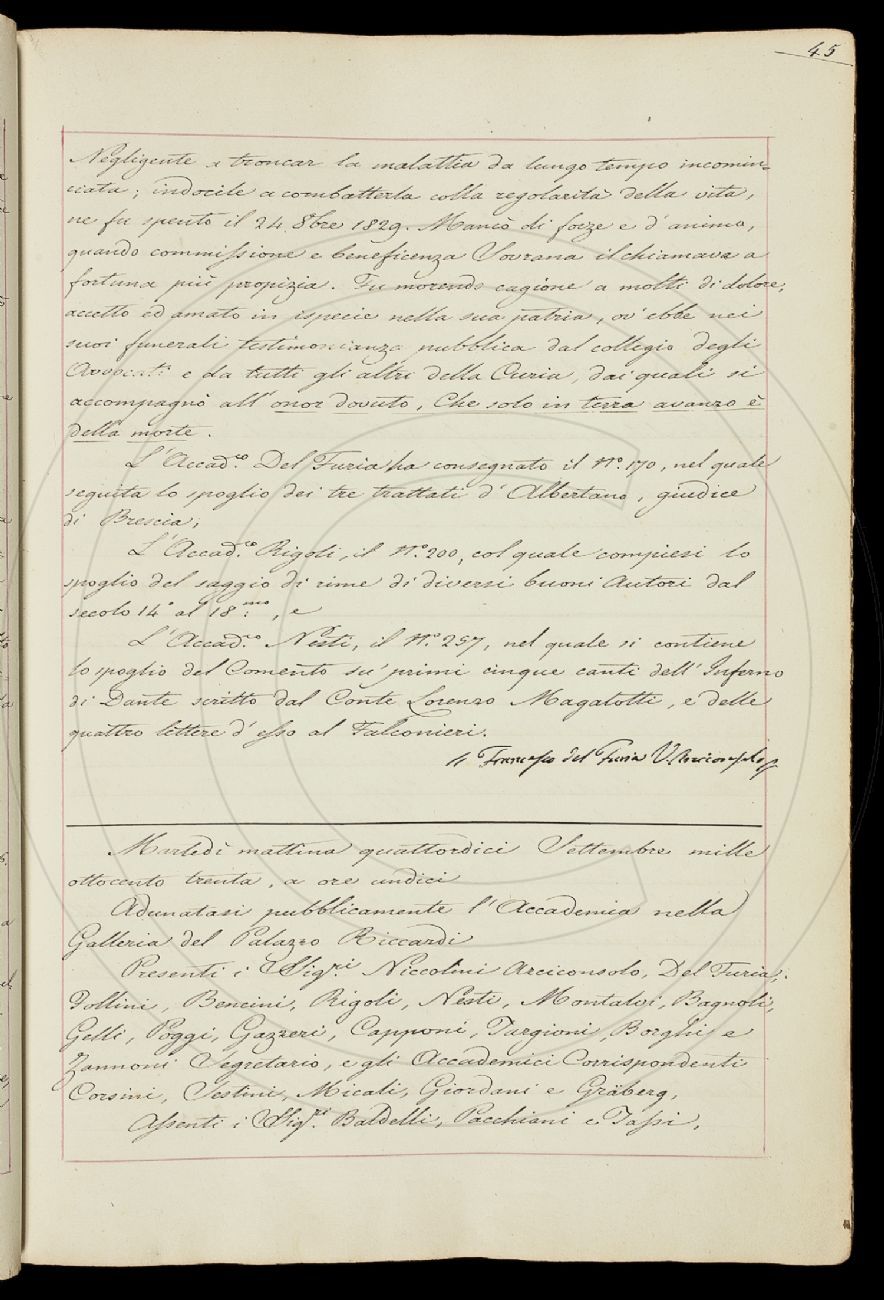 45
Negligente a troncar la malattia da lungo tempo incomin-
ciata; indocile a combatterla colla regolarità della vita,
ne fu spento il 24. 8bre 1829. Mancò di forze e d'animo,
quando commissione e beneficenza Sovrana il chiamava a
fortuna più propizia. Fu morendo cagione a molti di dolore,
accetto ed amato in ispecie nella sua patria, ov'ebbe nei
suoi funerali testimonianza pubblica dal collegio degli
Avvocati e da tutti gli altri della Curia, dai quali si
accompagnò all'onor dovuto, Che solo in terra avanzo è
della morte.
L'Accad.co Del Furia ha consegnato il N.o 170, nel quale
seguita lo spoglio dei tre trattati d'Albertano, giudice
di Brescia;
L'Accad.co Rigoli, il N.o 200, col quale compiesi lo
spoglio del saggio di rime di diversi buoni Autori dal
secolo 14.o al 18.mo, e
L'Accad.co Nesti, il N.o 257, nel quale si contiene
lo spoglio del Comento su' primi cinque canti dell'Inferno
di Dante scritto dal Conte Lorenzo Magalotti, e delle
quattro lettere d'esso al Falconieri.
Francesco del Furia V. Arciconsolo
Martedì mattina quattordici Settembre mille
ottocento trenta, a ore undici
Adunatasi pubblicamente l'Accademia nella
Galleria del Palazzo Riccardi
Presenti i Sigri Niccolini Arciconsolo, Del Furia,
Follini, Bencini, Rigoli, Nesti, Montalvi, Bagnoli,
Gelli, Poggi, Gazzeri, Capponi, Targioni, Borghi e
Zannoni Segretario, e gli Accademici Corrispondenti
Corsini, Sestini, Micali, Giordani e Gräberg,
Assenti i Sigri Baldelli, Pacchiani e Tassi.